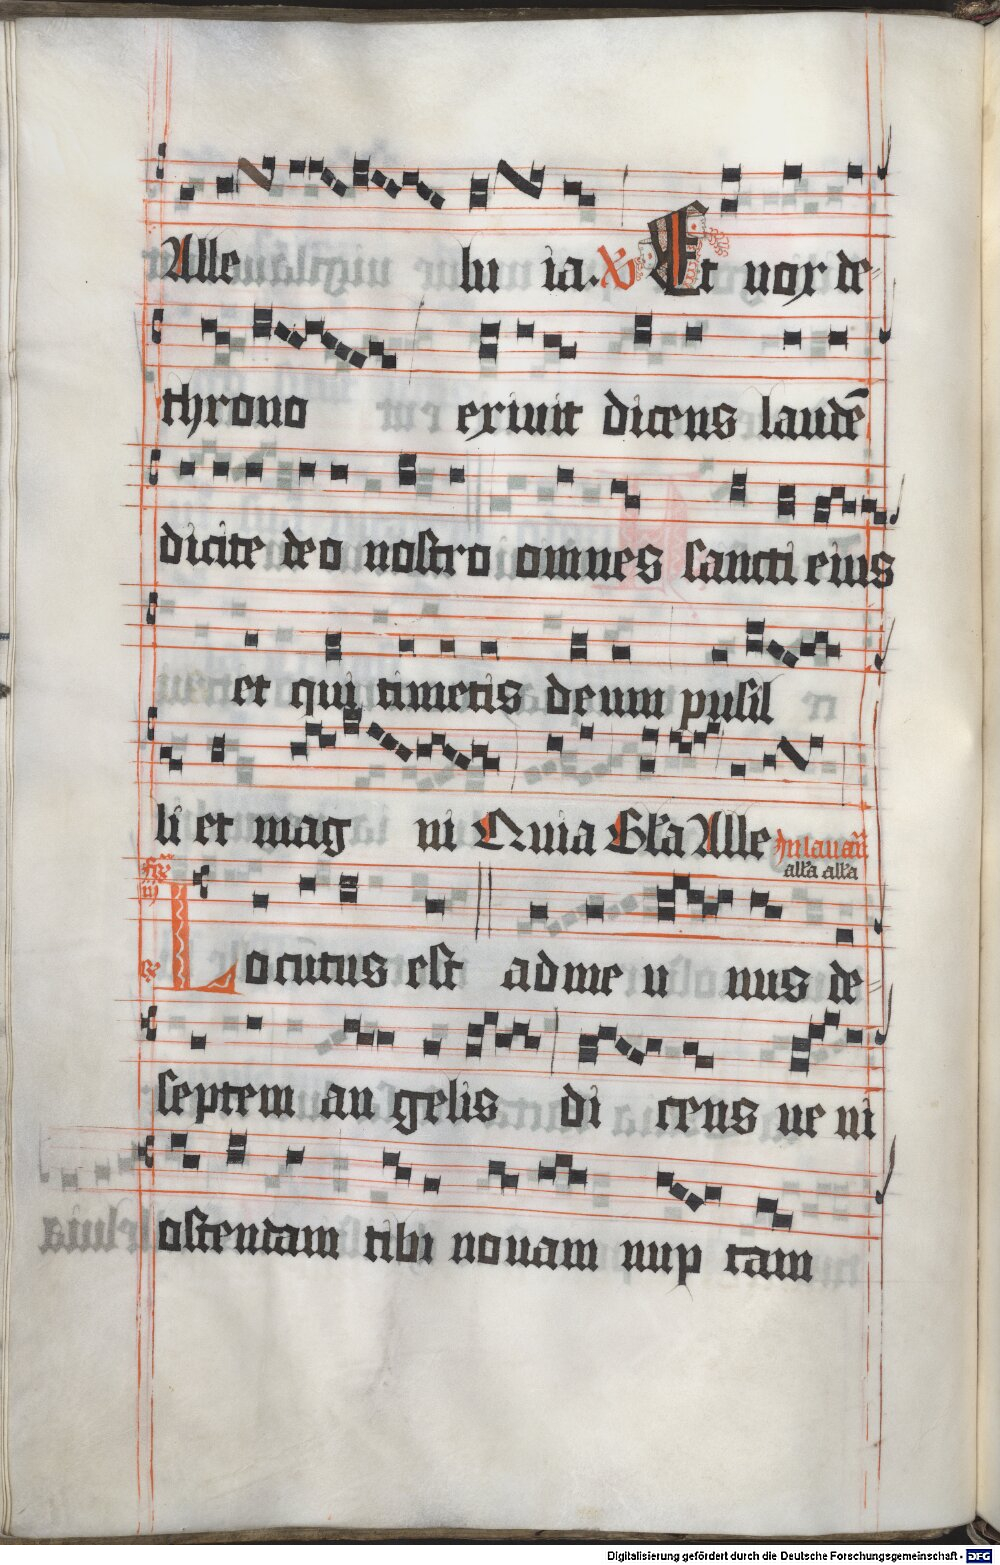 Alle lu ia. Et uox de
throno exiuit dicens laudē
dicite deo nostro omnes sancti eius
et qui timetis deum pusil
li et mag ni Quia Gl'a Alle
all'a all'a
Locutus est ad me u nus de
septem an gelis di cens ue ni
ostendam tibi nouam nup tam
Digitalisierung gefördert durch die Deutsche Forschungsgemeinschaft - DFG